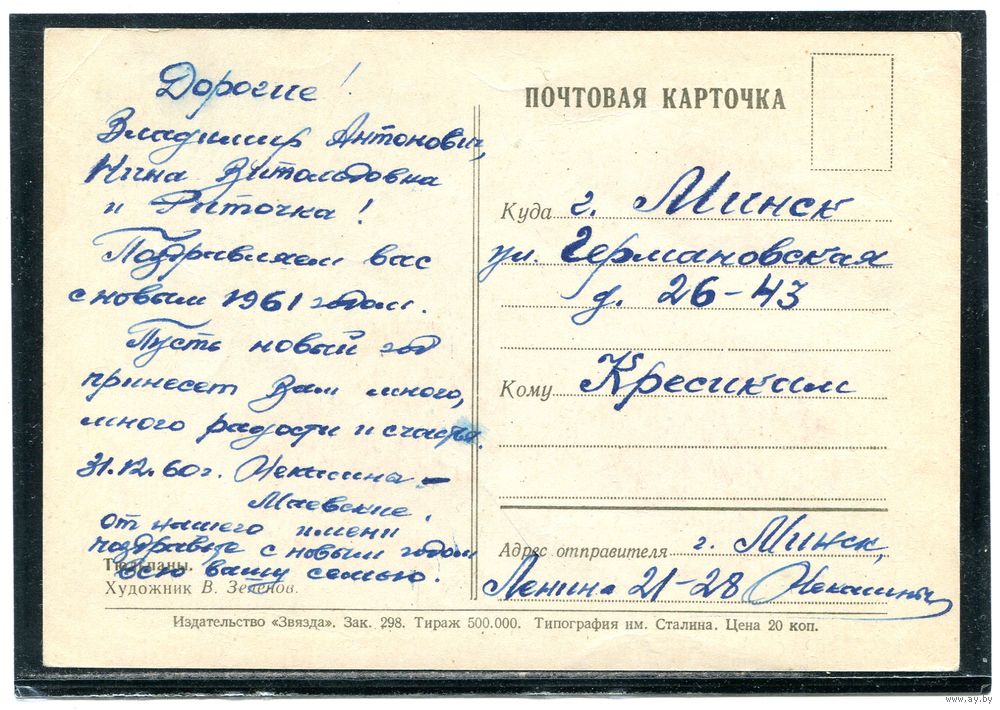 Дорогие!
Владимир Антонович,
Нина Витольдовна
и Риточка!
Поздравляем вас
с новым 1961 годом.
Пусть новый год
принесет Вам много,
много радости и счастья.
31.12.60г.
Маевские.
от нашего имени
поздравьте с новым годом
всю вашу семью.
Тюльпаны.
Художник В. Зеленов.
ПОЧТОВАЯ КАРТОЧКА
Куда г. Минск
ул. Германовская
д. 26-43
Кому Кресиким
Адрес отправителя г. Минск,
Ленина 21-28
Издательство «Звязда». Зак. 298. Тираж 500.000. Типография им. Сталина. Цена 20 коп.
www.ay.by